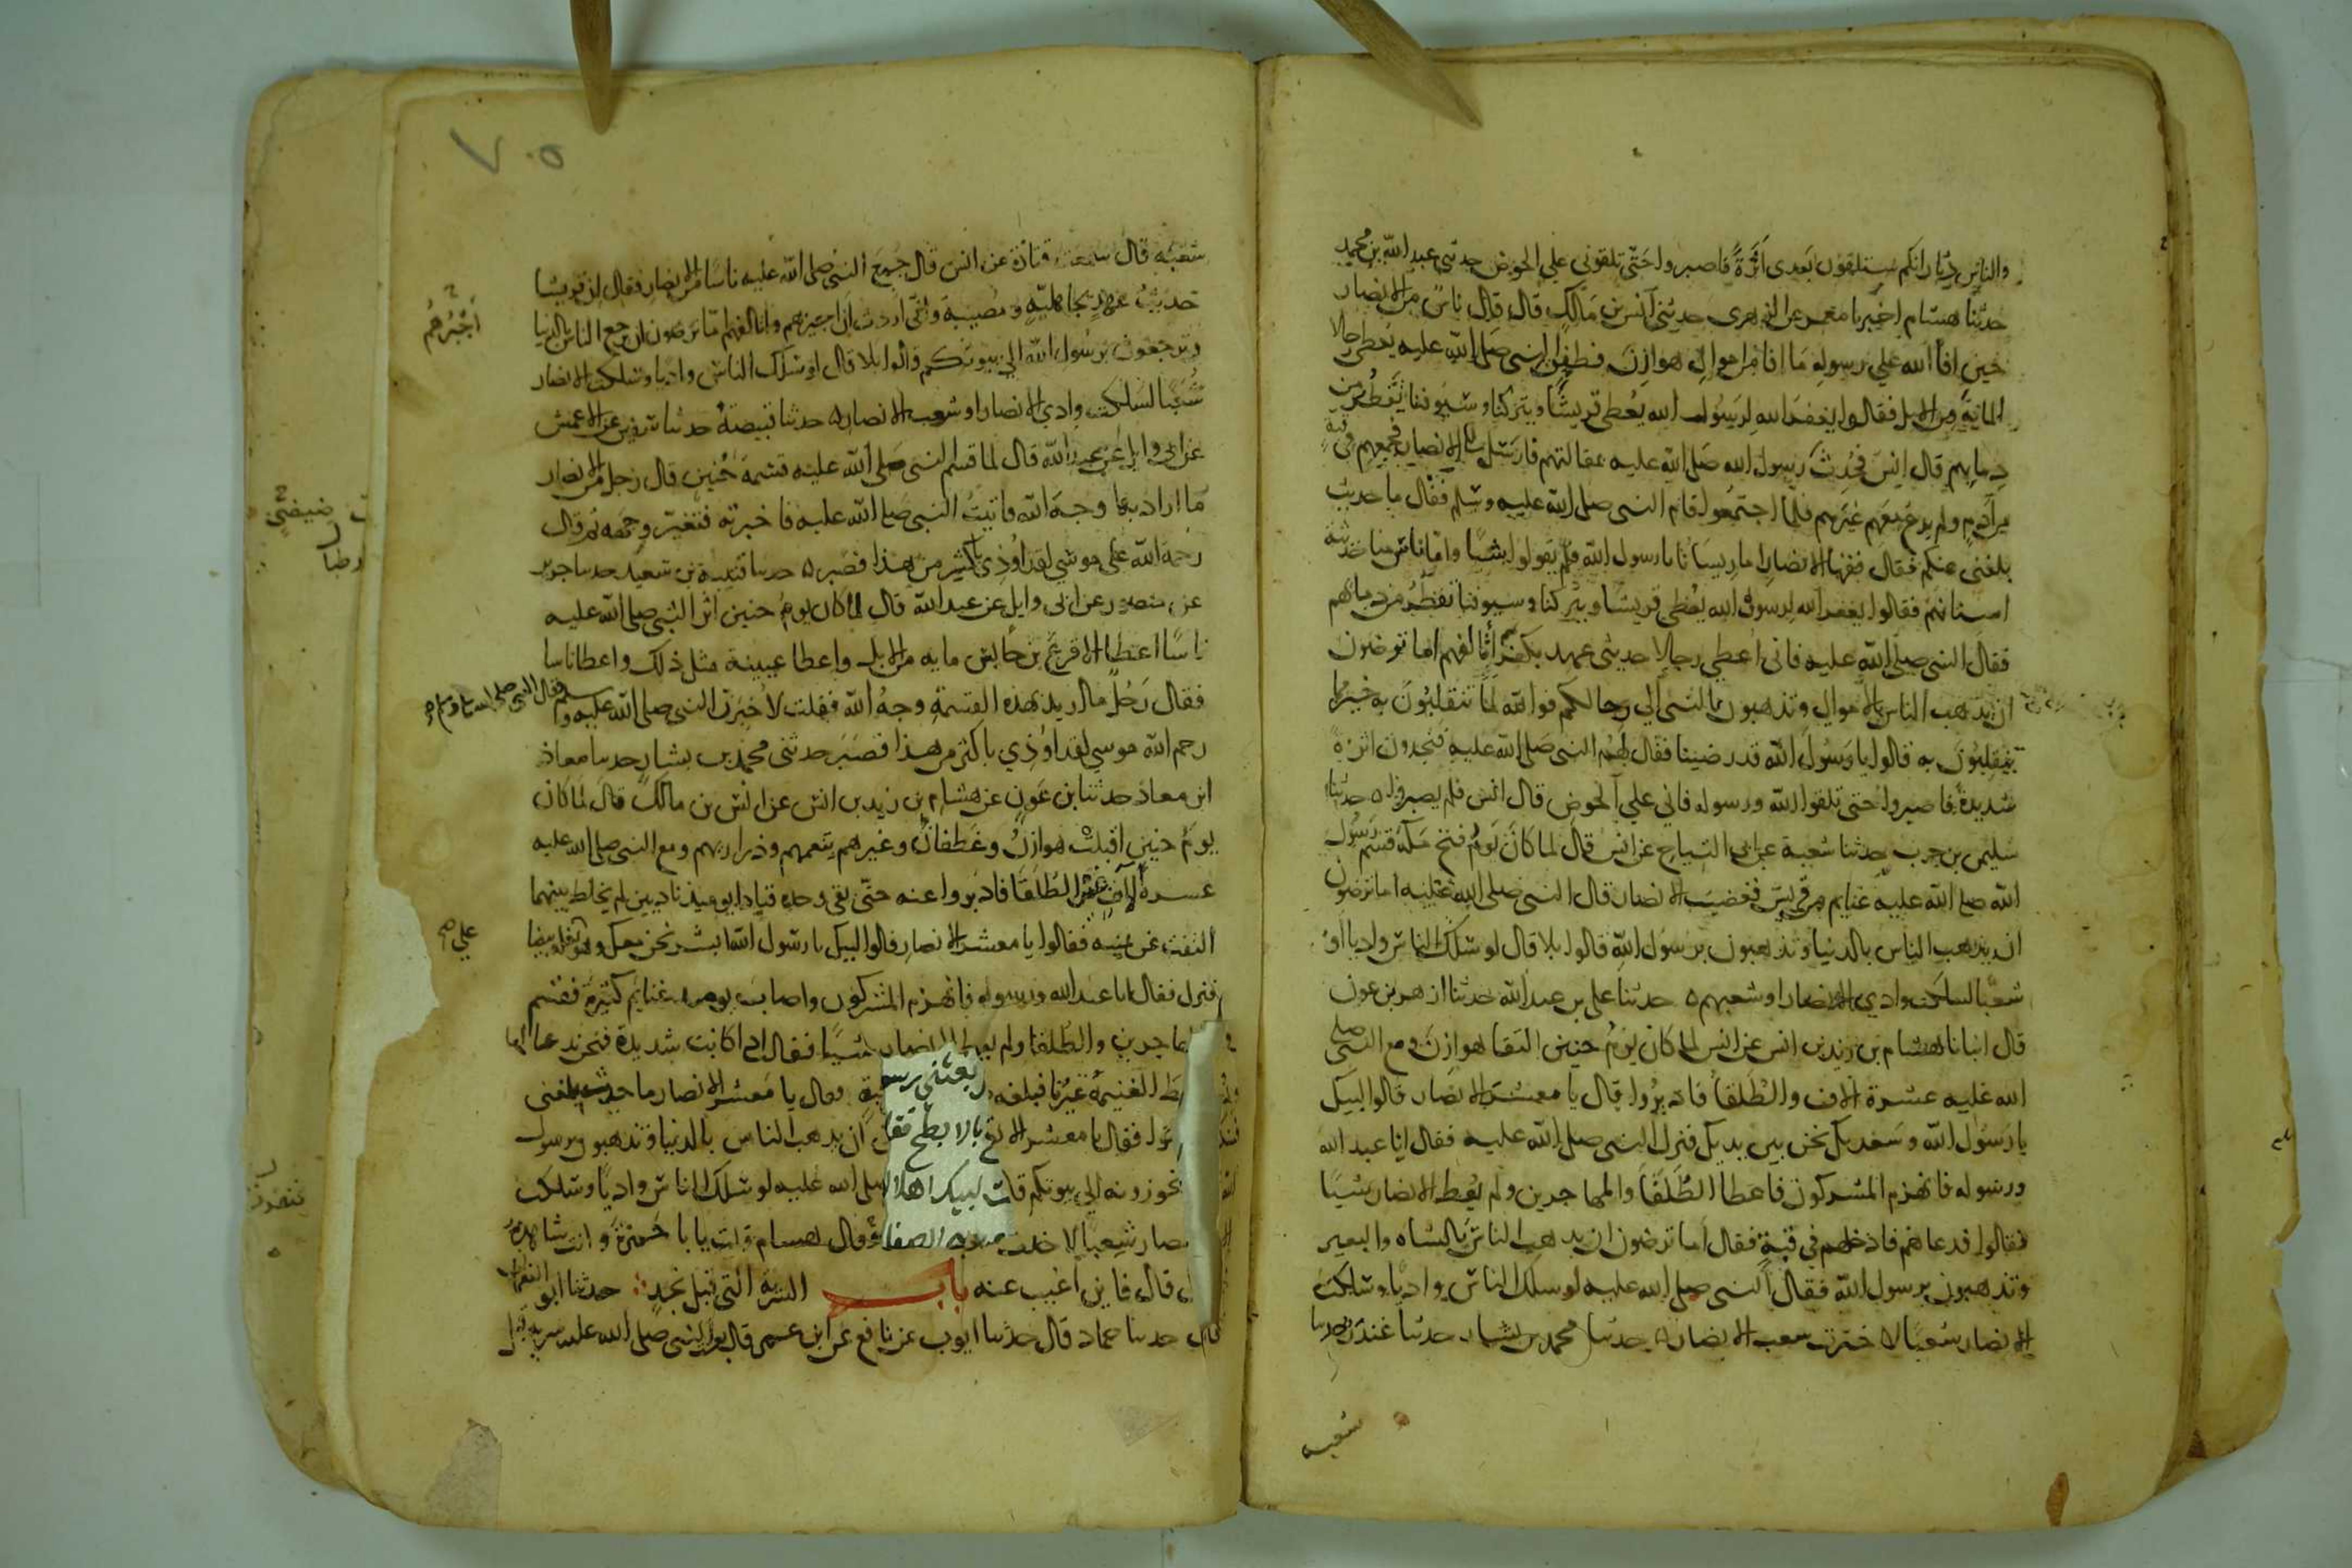 والناس دثار انكم ستلقون بعدى اثرة فاصبروا حتى تلقوني علي الحوض حدثنى عبد الله بن محمد
حدثنا هشام اخبرنا معمر عن الزهرى حدثني انس بن مالك قال قال ناس من الانصار
حين افا الله علي رسوله ما افا من اموال هوازن فطفق النبى صلى الله عليه يعطى رجالا
الماية من الابل فقالوا يغفر الله لرسول الله يعطى قريشا ويتركنا وسيوفنا تقطر من
دمايهم قال انس فحدث رسول الله صلى الله عليه بمقالتهم فارسل الى الانصار فجمعهم فى قبة
من ادم ولم يدع معهم غيرهم فلما اجتمعوا قام النبى صلى الله عليه وسلم فقال ما حديث
بلغنى عنكم فقال فقها الانصار اما ريسانا يا رسول الله فلم يقولوا شيا واما ناس منا حديثة
اسنانهم فقالوا يغفر الله لرسول الله يعطى قريشا ويتركنا وسيوفنا تقطر من دمايهم
فقال النبى صلى الله عليه فانى اعطي رجالا حديثى عهد بكفر اتالفهم اما ترضون
ان يذهب الناس بالاموال وتذهبون بالنبى الي رحالكم فوالله لما تنقلبون به خير مما
ينقلبون به قالوا يا رسول الله قد رضينا فقال لهم النبى صلى الله عليه فتجدون اثرة
شديدة فاصبروا حتى تلقوا الله ورسوله فاني علي الحوض قال انس فلم يصبروا ه حدثنا
سليمن بن حرب حدثنا شعبة عن ابى التياح عن انس قال لما كان يوم فتح مكة قسم رسول
الله صلى الله عليه غنايم من قريش فغضبت الانصار قال النبى صلى الله عليه اما ترضون
ان يذهب الناس بالدنيا وتذهبون برسول الله قالوا بلا قال لو سلك الناس واديا او
شعبا لسلكت وادي الانصار او شعبهم ه حدثنا على بن عبد الله حدثنا ازهر بن عون
قال انبانا هشام بن زيد بن انس عن انس لما كان يوم حنين التقا هوازن ومع النبى صلى
الله عليه عشرة الاف والطلقا فادبروا قال يا معشر الانصار قالوا لبيك
يا رسول الله وسعديك نحن بين يديك فنزل النبى صلى الله عليه فقال انا عبد الله
ورسوله فانهزم المشركون فاعطا الطلقا والمهاجرين ولم يعط الانصار شيا
فقالوا فدعاهم فادخلهم في قبة فقال اما ترضون ان يذهب الناس بالشاه والبعير
وتذهبون برسول الله فقال النبى صلى الله عليه لو سلك الناس واديا وسلكت
الانصار شعبا لاخترت شعب الانصار ه حدثنا محمد بن بشار حدثنا غندر حدثنا
شعبه
٧٠٥
شعبه قال سمعت قتادة عن انس قال جمع النبى صلى الله عليه ناسا من الانصار فقال ان قريشا
حديث عهد بجاهلية ومصيبة وانى اردت ان اجيزهم واتالفهم اما ترضون ان يرجع الناس بالدنيا
اجبرهم
وترجعون برسول الله الي بيوتكم قالوا بلا قال لو سلك الناس واديا وسلكت الانصار
شعبا لسلكت وادي الانصار او شعب الانصار ه حدثنا قبيصة حدثنا سفين عن الاعمش
عن ابى وايل عن عبد الله قال لما قسم النبى صلى الله عليه قسمة حنين قال رجل من الانصار
ما اراد بها وجه الله فاتيت النبى صلى الله عليه فاخبرته فتغير وجهه ثم قال
رحمة الله على موسي لقد اوذي باكثر من هذا فصبر ه حدثنا قتيبة بن سعيد حدثنا جرير
عن منصور عن ابى وايل عن عبد الله قال لما كان يوم حنين اثر النبى صلى الله عليه
ناسا اعطا الاقرع بن حابس مايه من الابل واعطا عيينة مثل ذلك واعطا ناسا
فقال رجل ما اريد بهذه القسمة وجه الله فقلت لاخبرن النبى صلى الله عليه وسلم فقال النبي صلى الله عليه وسلم
رحم الله موسي لقد اوذي باكثر من هذا فصبر حدثنى محمد بن بشار حدثنا معاذ
ابن معاذ حدثنا بن عون عن هشام بن زيد بن انس عن انس بن مالك قال لما كان
يوم حنين اقبلت هوازن وغطفان وغيرهم بنعمهم وذراريهم ومع النبى صلى الله عليه
عشرة الاف من الطلقا فادبروا عنه حتى بقى وحده فنادا يوميذ نداين لم يخلط بينهما
التفت عن يمينه فقالوا يا معشر الانصار قالوا لبيك يا رسول الله ابشر نحن معك وهو على بغلة بيضا
علي
فنزل فقال انا عبد الله ورسوله فانهزم المشركون واصاب يوميذ غنايم كثيرة فقسم
هاجرين والطلقا ولم يعط الانصار شيا فقال اذا كانت شديدة فنحن ندعا
ط الغنيمة غيرنا فبلغه بعثنى رسو بة وقال يا معشر الانصار ما حديث بلغنى
فقال يا معشر الا بالابطح فقل ان يذهب الناس بالدنيا وتذهبون برسول
تحوزونه الي بيوتكم قالت لبيك اهلا صلى الله عليه لو سلك الناس واديا وسلكت
نصار شعبا لاخذت وبالصفا وقال هشام قلت يا با حمزة وانت شاهد
قال فاين اغيب عنه باب السرية التى قبل نجد حدثنا ابو النعمان
قال حدثنا حماد قال حدثنا ايوب عن نافع عن ابن عمر قال بعث النبى صلى الله عليه سرية قبل